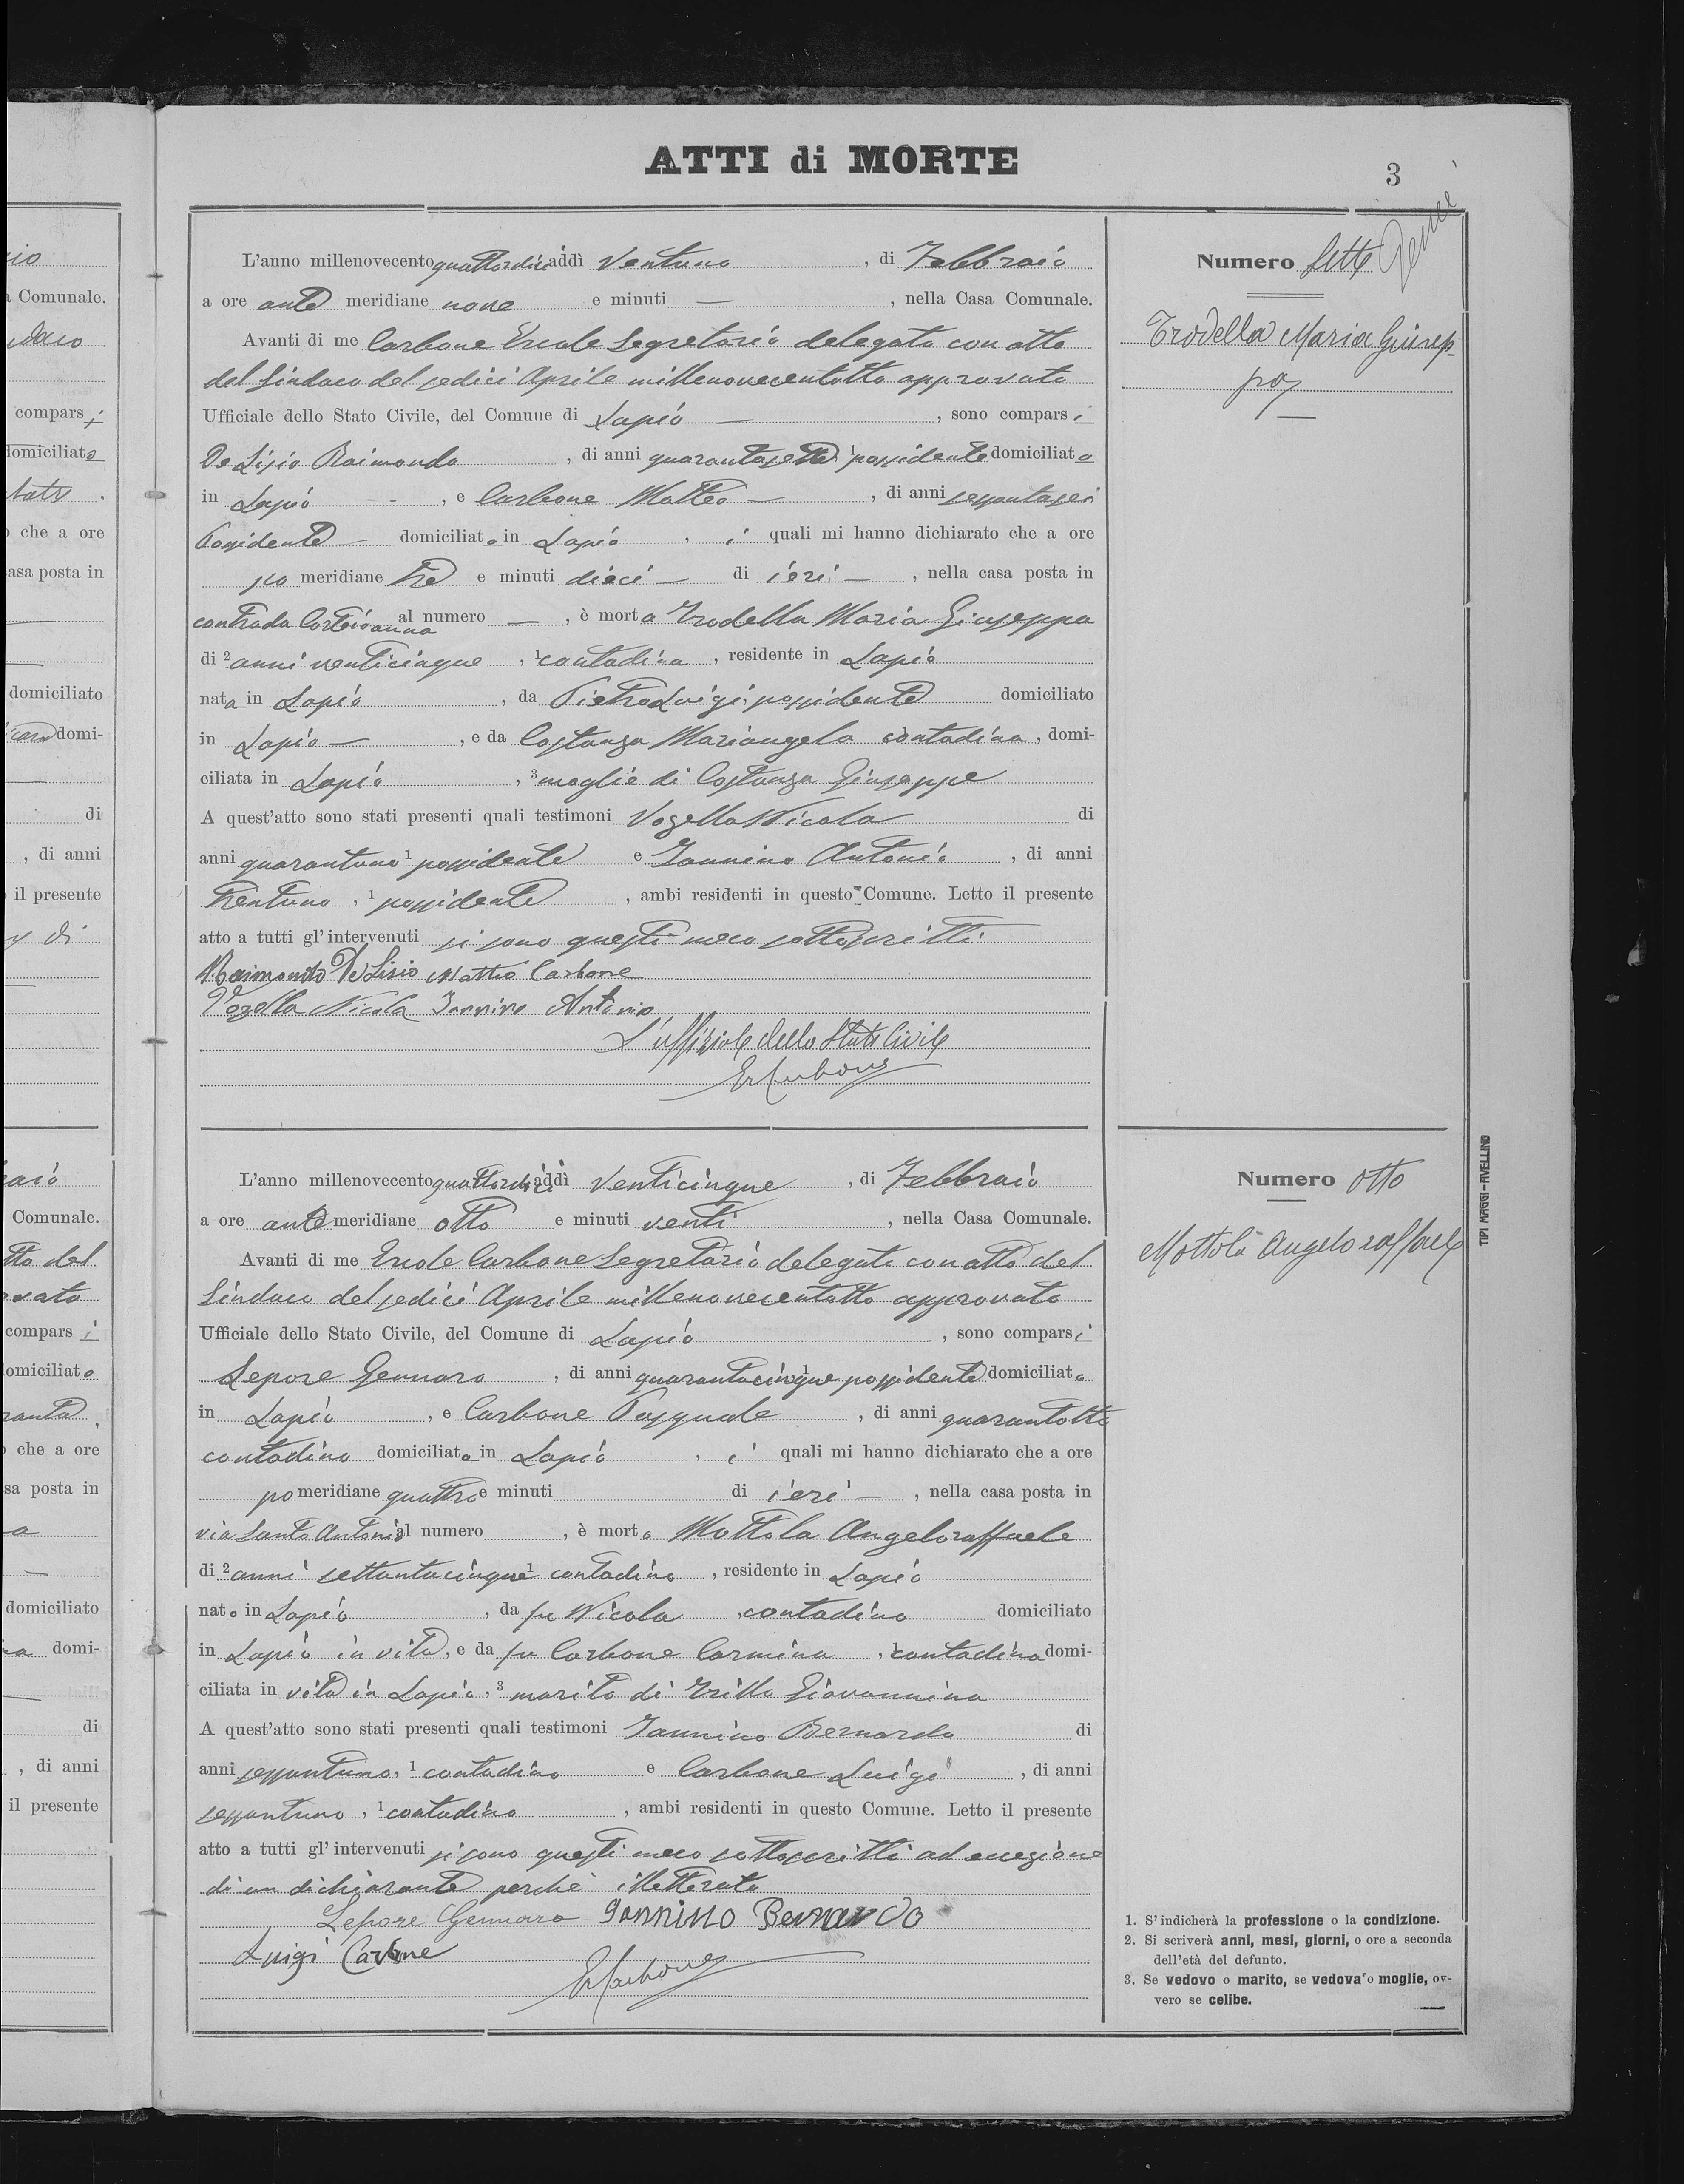 io
a Comunale.
daco
compars i
domiciliato
che a ore
casa posta in
domiciliato
domi-
di
, di anni
il presente
di
aio
Comunale.
tto del
ovato
compars i
domiciliato
ranta,
che a ore
sa posta in
a
domiciliato
na domi-
di
, di anni
il presente
ATTI di MORTE
3
L'anno millenovecento quattordici addì ventuno, di Febbraio
a ore ante meridiane nove e minuti —, nella Casa Comunale.
Avanti di me Carbone Ercole Segretario delegato con atto
del Sindaco del sedici Aprile millenovecentotto approvato
Ufficiale dello Stato Civile, del Comune di Lapio —, sono comparsi
De Lisio Raimondo, di anni quarantasette ¹ possidente domiciliato
in Lapio, e Carbone Matteo —, di anni sessantasei
Possidente — domiciliato in Lapio, i quali mi hanno dichiarato che a ore
po meridiane tre e minuti dieci — di ieri —, nella casa posta in
contrada Cortejoanna al numero —, è morta Trodella Maria Giuseppa
di ² anni venticinque, ¹ contadina, residente in Lapio
nata in Lapio, da Pietro Luigi, possidente domiciliato
in Lapio —, e da Costanza Mariangela contadina, domi-
ciliata in Lapio, ³ moglie di Costanza Giuseppe
A quest'atto sono stati presenti quali testimoni Vozella Nicola di
anni quarantuno ¹ possidente e Iannino Antonio, di anni
trentuno, ¹ possidente, ambi residenti in questo Comune. Letto il presente
atto a tutti gl'intervenuti si sono questi meco sottoscritti
Raimondo De Lisio Matteo Carbone
Vozella Nicola Iannino Antonio
L'uffiziale dello Stato Civile
ErCarbone
Numero sette
Trodella Maria Giusep-
pa
—
L'anno millenovecento quattordici addì venticinque, di Febbraio
a ore ante meridiane otto e minuti venti, nella Casa Comunale.
Avanti di me Ercole Carbone Segretario delegato con atto del
Sindaco del sedici Aprile millenovecentotto approvato
Ufficiale dello Stato Civile, del Comune di Lapio, sono comparsi
Lepore Gennaro, di anni quarantacinque ¹ possidente domiciliato
in Lapio, e Carbone Pasquale, di anni quarantotto
contadino domiciliato in Lapio, i quali mi hanno dichiarato che a ore
po meridiane quattro e minuti di ieri —, nella casa posta in
via Santo Antonio al numero, è morto Mottola Angeloraffaele
di ² anni settantacinque ¹ contadino, residente in Lapio
nato in Lapio, da fu Nicola, contadino domiciliato
in Lapio in vita, e da fu Carbone Carmina, ¹ contadina domi-
ciliata in vita in Lapio, ³ marito di Trillo Giovannina
A quest'atto sono stati presenti quali testimoni Iannino Bernardo di
anni sessantuno, ¹ contadino e Carbone Luigi, di anni
sessantuno, ¹ contadino, ambi residenti in questo Comune. Letto il presente
atto a tutti gl'intervenuti si sono questi meco sottoscritti ad eccezione
di un dichiarante perché illetterato
Lepore Gennaro Iannino Bernardo
Luigi Carbone
ErCarbone
Numero otto
Mottola Angeloraffaele
TIPI MAGGI - AVELLINO
1. S'indicherà la professione o la condizione.
2. Si scriverà anni, mesi, giorni, o ore a seconda
dell'età del defunto.
3. Se vedovo o marito, se vedova o moglie, ov-
vero se celibe.